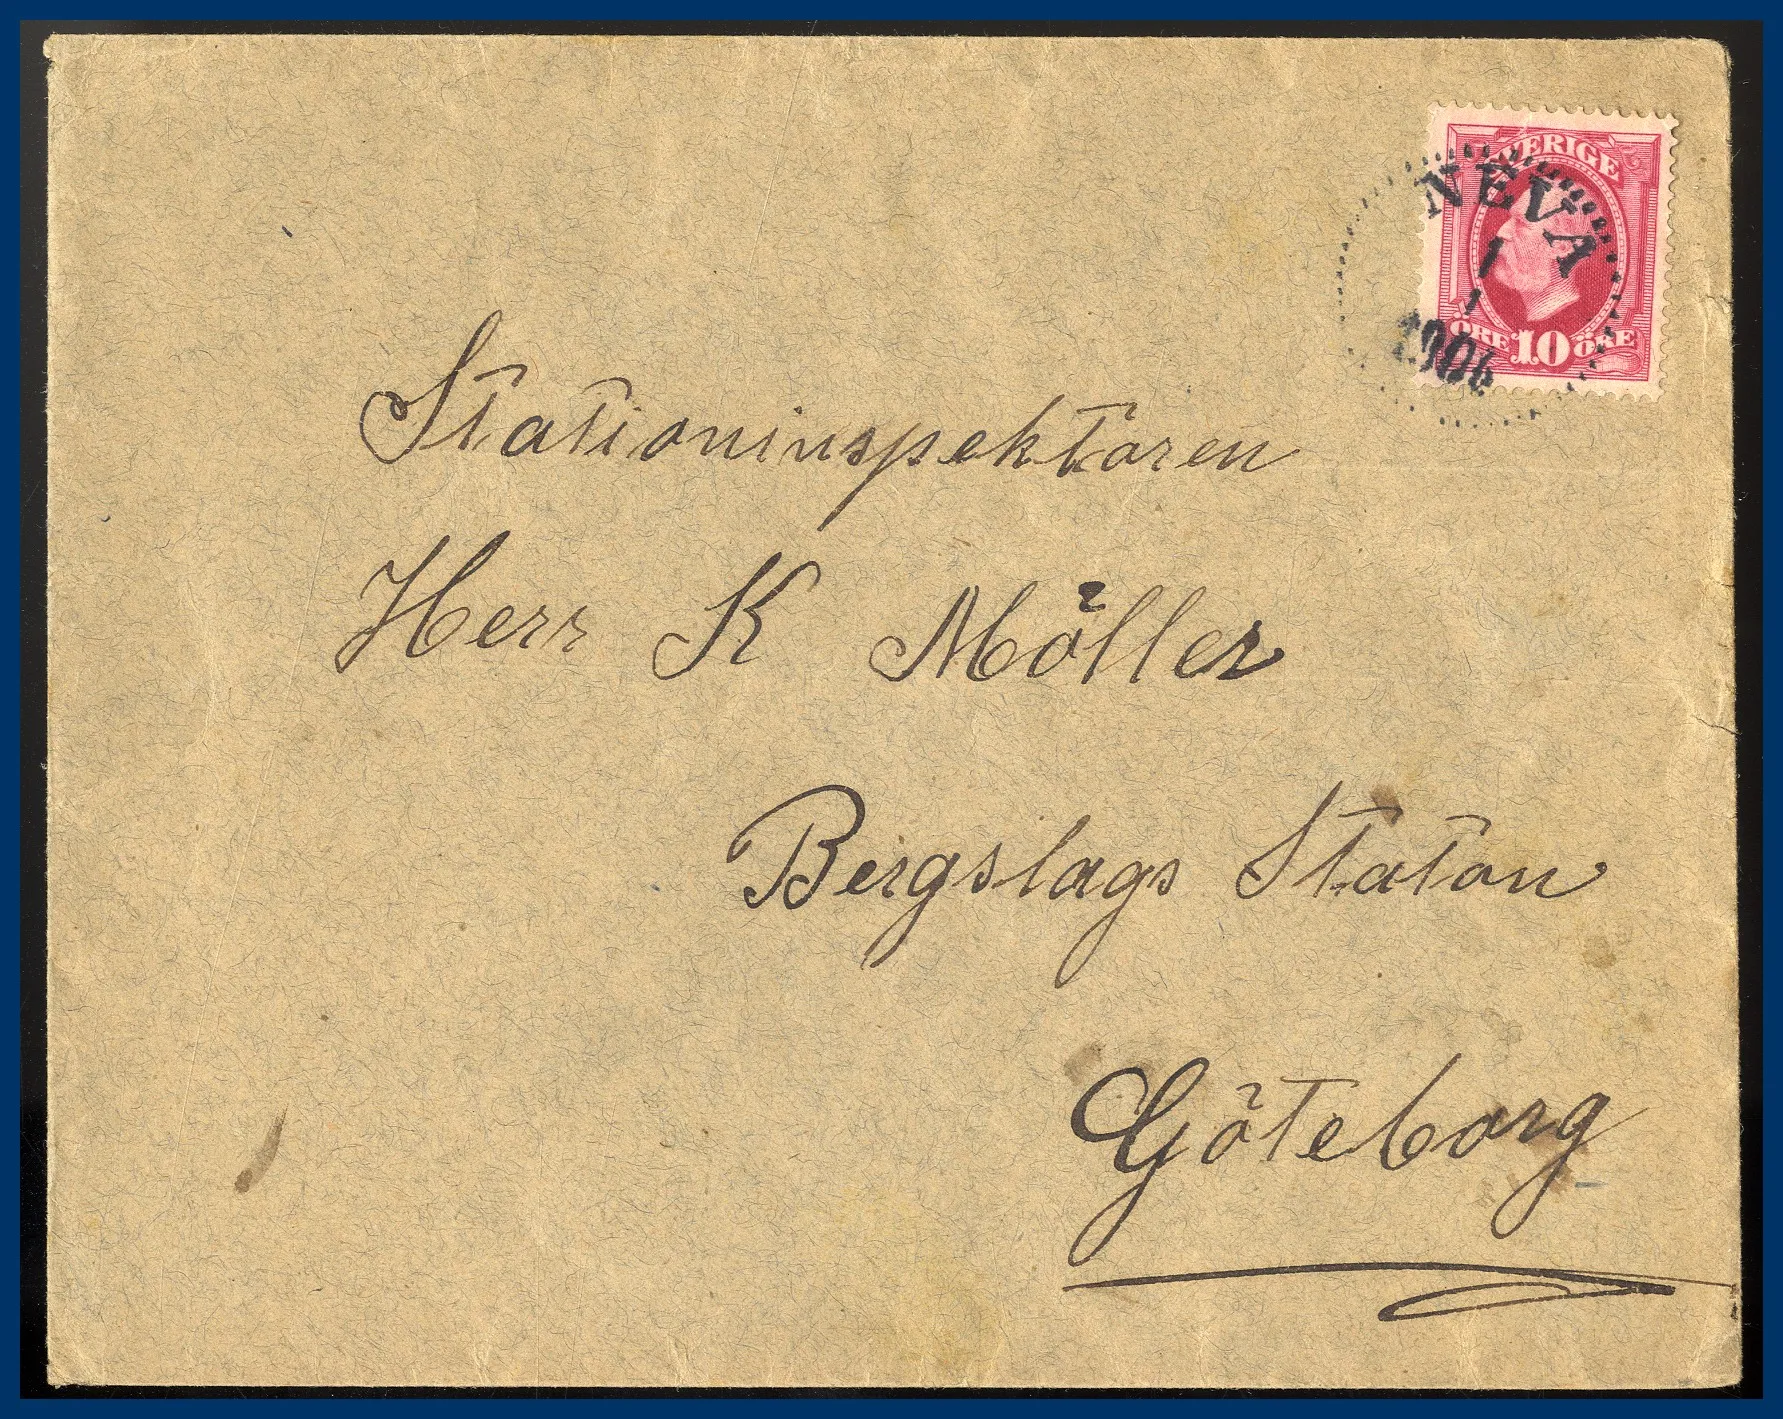 SVERIGE
NEVA
1
1
1906
ÖRE 10 ÖRE
Stationinspektoren
Herr K Möller
Bergslags Staton
Göteborg